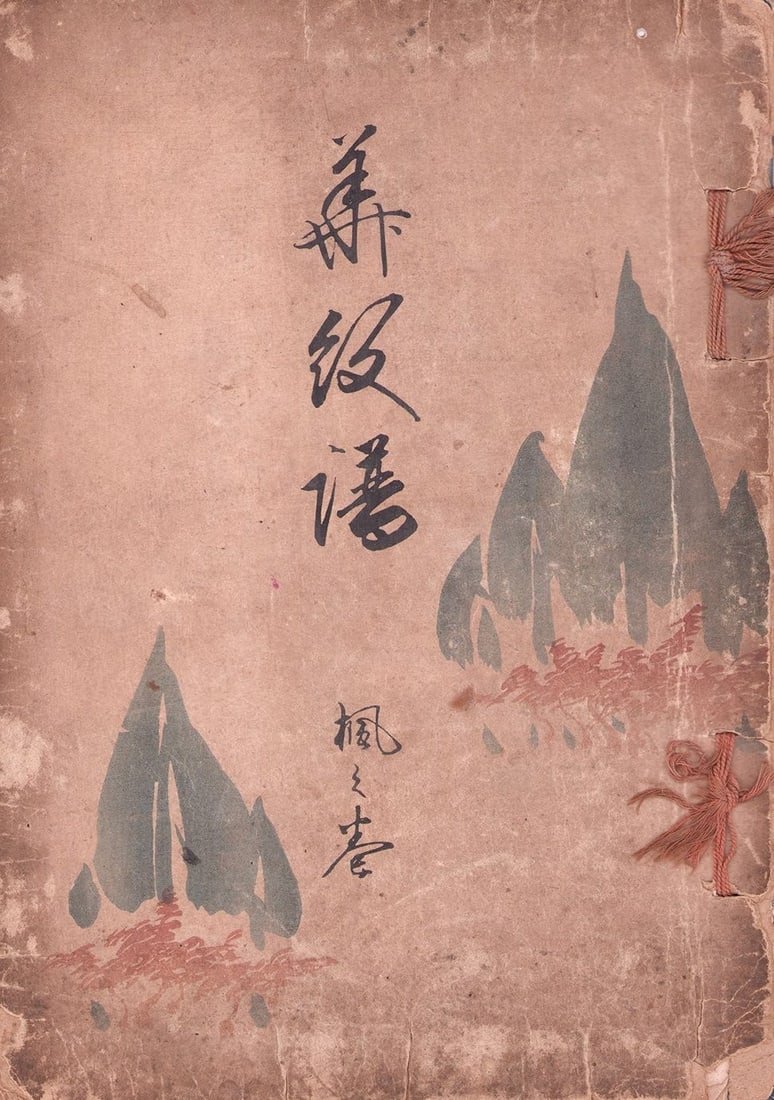 華紋譜
楓之巻